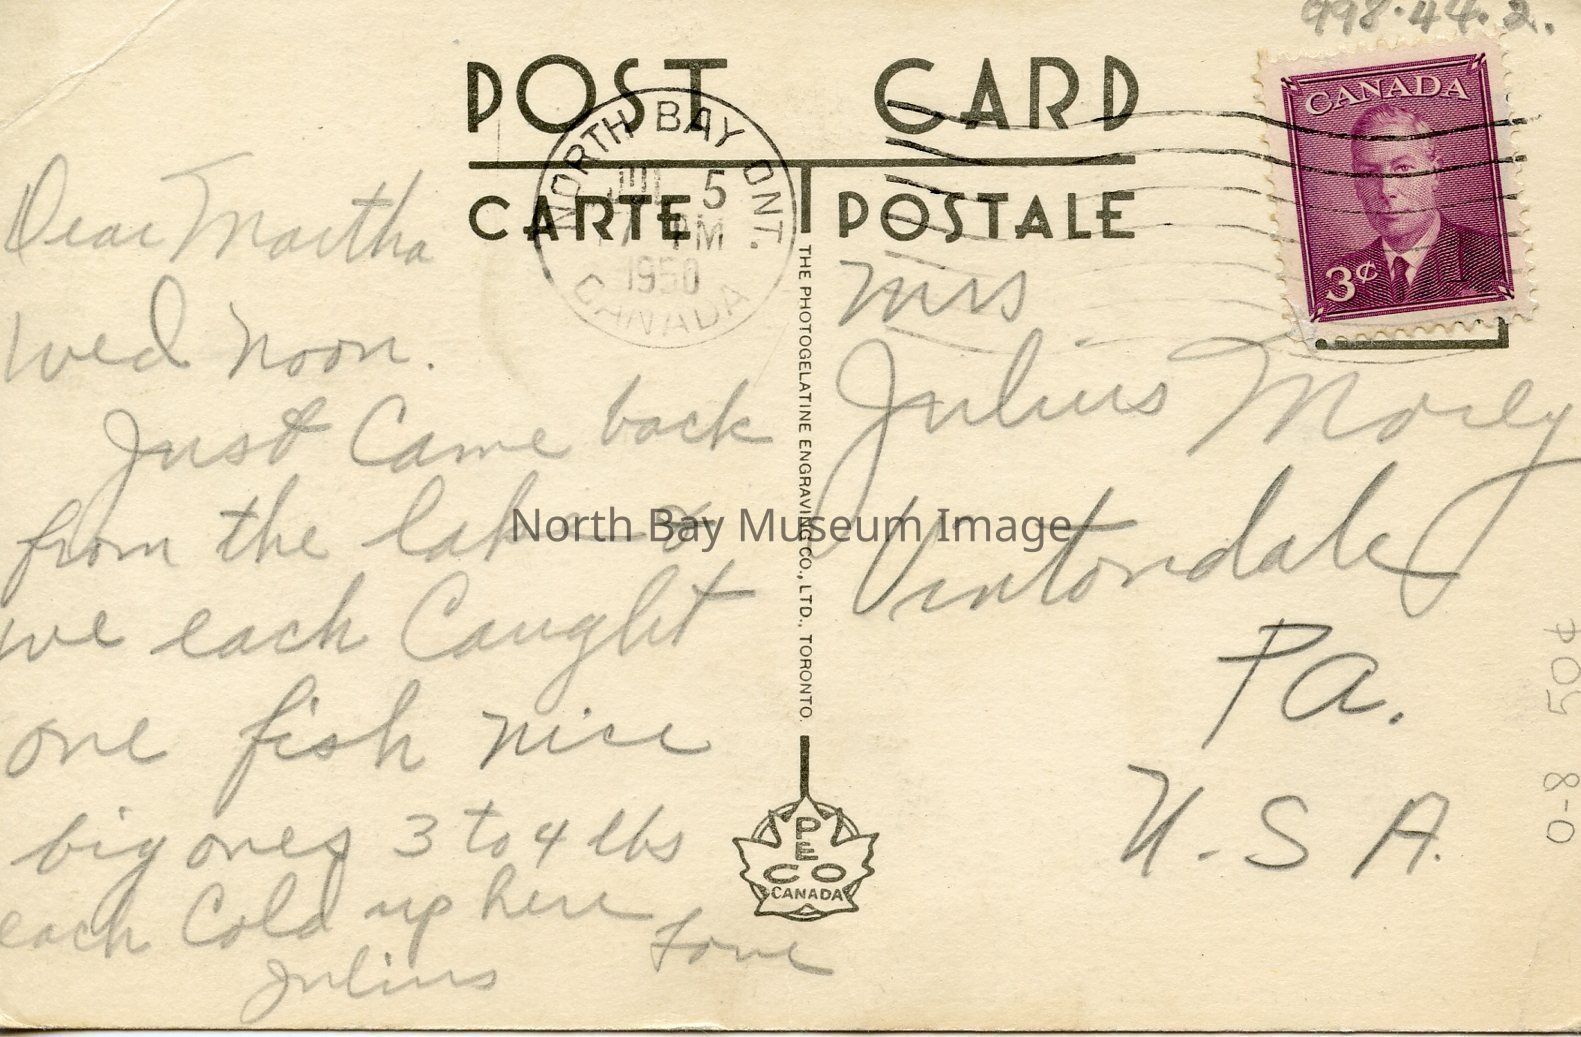 998.44.2.
POST CARD
CARTE POSTALE
NORTH BAY ONT.
JUL 5
PM
1950
CANADA
CANADA
3¢
Dear Martha
Wed Noon.
Just Came back
from the lake &
we each Caught
one fish nice
big ones 3 to 4 lbs
each Cold up here
Love
Julius
THE PHOTOGELATINE ENGRAVING CO., LTD., TORONTO.
PECO
CANADA
Mrs
Julius Morey
Vintondale
Pa.
U.S.A.
0-8 50¢
North Bay Museum Image